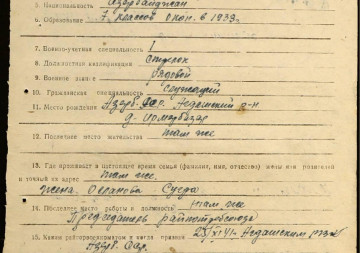 5. Национальность Азербайджан
6. Образование 7 классов Окон. в 1933 г.
7. Военно-учетная специальность 1
8. Должностная квалификация Стрелок
9. Военное звание Рядовой
10. Гражданская специальность служащий
11. Место рождения Азерб. ССР. Агдашский р-н
д.
12. Последнее место жительства там же
13. Где проживает в настоящее время семья (фамилия, имя, отчество) жены или родителей
и точный их адрес там же.
жена
14. Последнее место работы и должность там же
Председатель
15. Каким райвоенкоматом и когда призван Агдашским РВК
Азерб. ССР.